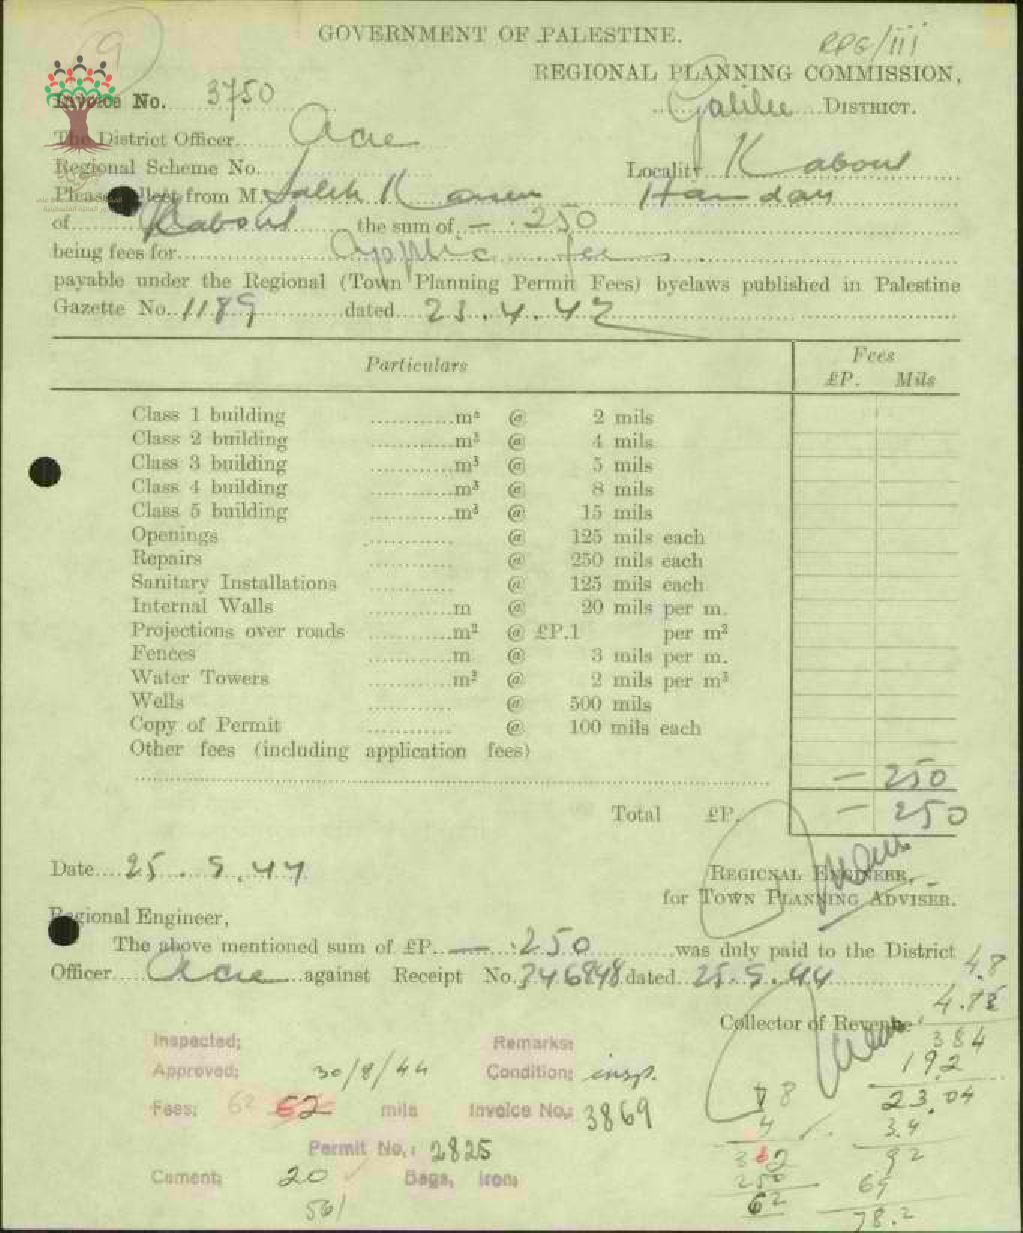 9
GOVERNMENT OF PALESTINE.
RPG/iii
REGIONAL PLANNING COMMISSION,
Galilee DISTRICT.
Invoice No. 3750
The District Officer. Acre
Regional Scheme No. Locality Kaboul
Please collect from M. Saleh Hamdan
of Kaboul the sum of — . 250
being fees for fees
payable under the Regional (Town Planning Permit Fees) byelaws published in Palestine
Gazette No. 1189 dated 23.4.42
Particulars Fees
£P. Mils
Class 1 building m³ @ 2 mils
Class 2 building m³ @ 4 mils
Class 3 building m³ @ 5 mils
Class 4 building m³ @ 8 mils
Class 5 building m³ @ 15 mils
Openings @ 125 mils each
Repairs @ 250 mils each
Sanitary Installations @ 125 mils each
Internal Walls m @ 20 mils per m.
Projections over roads m² @ £P.1 per m²
Fences m @ 3 mils per m.
Water Towers m³ @ 2 mils per m³
Wells @ 500 mils
Copy of Permit @ 100 mils each
Other fees (including application fees)
— 250
Total £P. — 250
Date 25.5.44
REGIONAL ENGINEER,
for TOWN PLANNING ADVISER.
Regional Engineer,
The above mentioned sum of £P. — .250 was duly paid to the District
Officer Acre against Receipt No. dated 25.5.44
Collector of Revenue
4.8
384
192
23.04
3.4
92
69
78.2
78
4
250
62
Inspected; Remarks:
Approved; 30/8/44 Condition; insp.
Fees; 62 62 mils Invoice No.: 3869
Permit No.: 2825
Cement; 20 Bags, Iron;
561